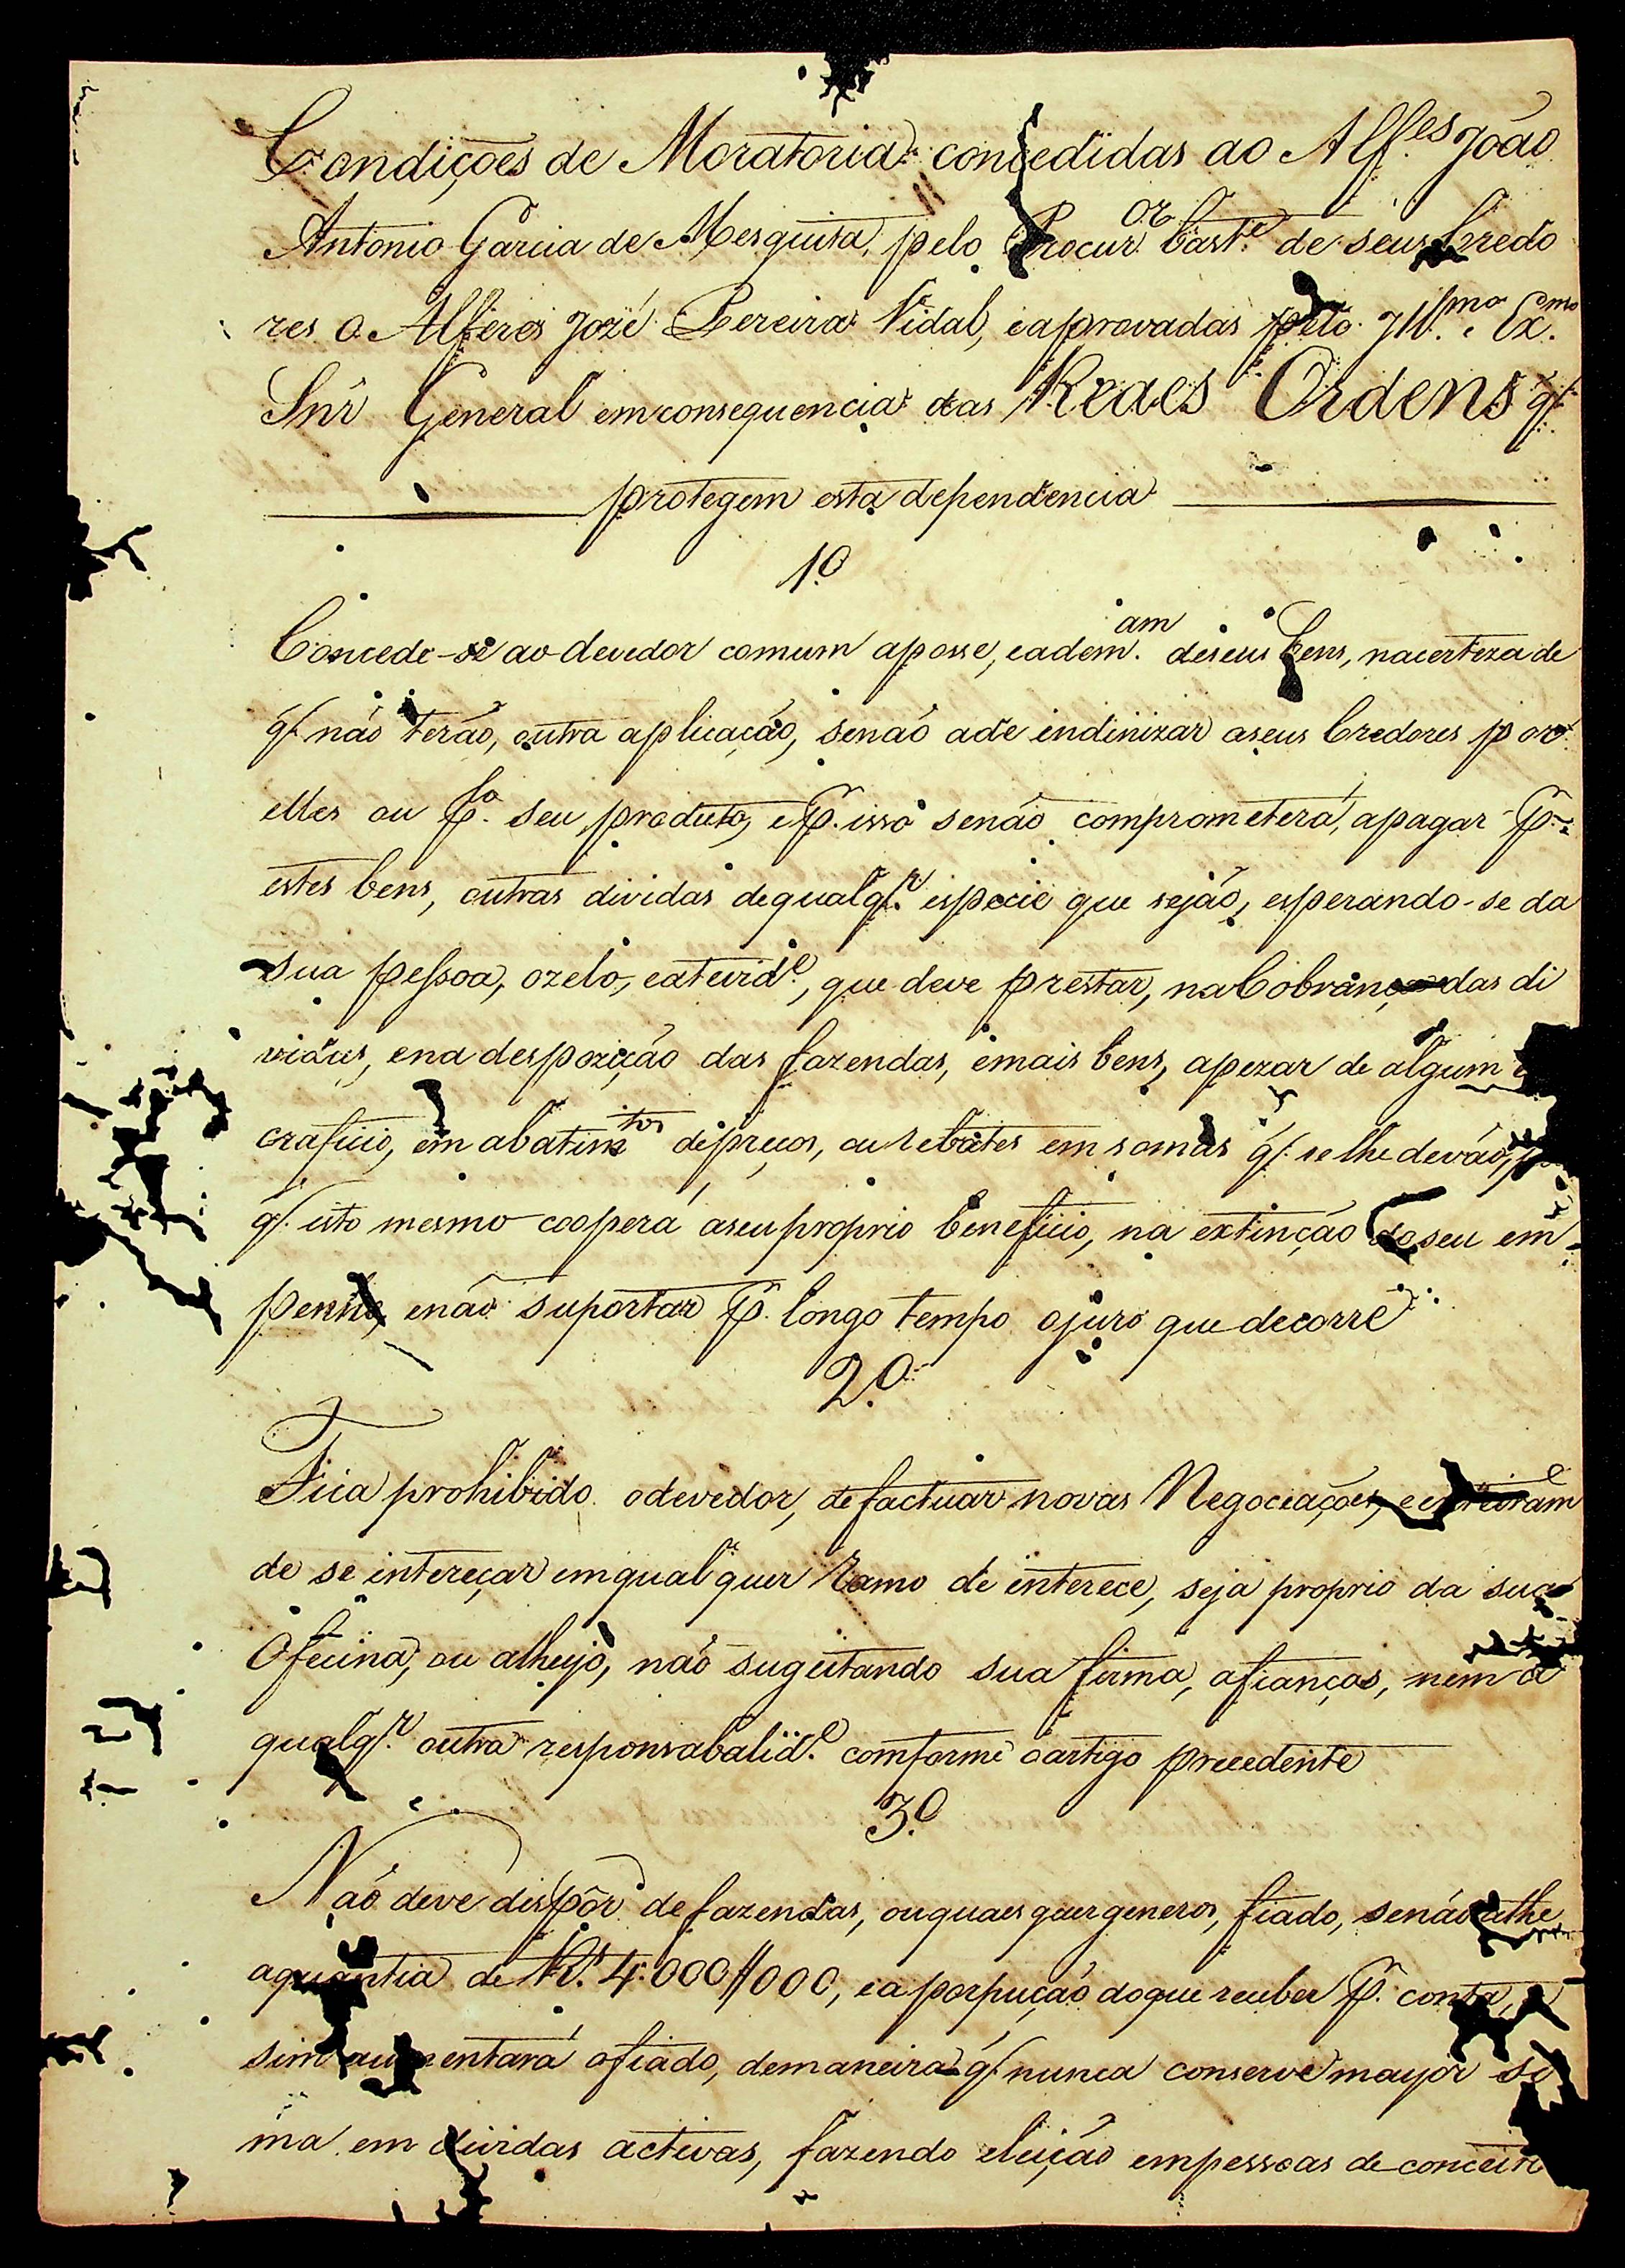 Condiçoẽs de Moratoria concedidas ao Alf.es João
Antonio Garcia de Mesquita, pelo Procur.or bast.e de seus Credo
res o Alferes Jozé Pereira Vidal, e aprovadas pelo Ill.mo e Ex.mo
Snr̃ General em consequencia das Reaes Ordens q̃
protegem esta dependencia
1.º
Concede-se ao devedor comum aposse, eadem.am deseus bens, nacerteza de
q̃ não terão, outra aplicação, senaõ ade indinizar aseus Credores por
elles ou p.lo seu produto, e p. isso senão comprometerá, apagar p.r
estes bens, outras dividas dequalq.r especie que sejão, esperando-se da
sua pessoa, ozelo, eativid.e, que deve prestar, na Cobrança das di
vidas, ena despozição das fazendas, emais bens, apezar de algum
crafício, em abatim.tos depreços, ou rebates em somas q̃ se lhe devão,
q̃ isto mesmo coopera aseuproprio beneficio, na extinção do seu em
penho, enão suportar p. longo tempo ojuro que decorre
2.º
Fica prohibido odevedor, defactuar novas Negociaçoẽs,
de se intereçar emqual quer ramo de interece, seja proprio da sua
Oficina, ou alheyo, não sugeitando sua firma, afianças, nem a
qualq.r outra responsabalid.e comforme oartigo precedente
3.º
Naõ deve dispôr defazendas, ouquaes quer generos, fiado, senão athe
aquantia de R.s 4.000$000, eaporpução doque receber p. conta,
sim aumentará ofiado, demaneira q̃ nunca conserve mayor so
ma em dividas activas, fazendo eleição empessoas de conceito